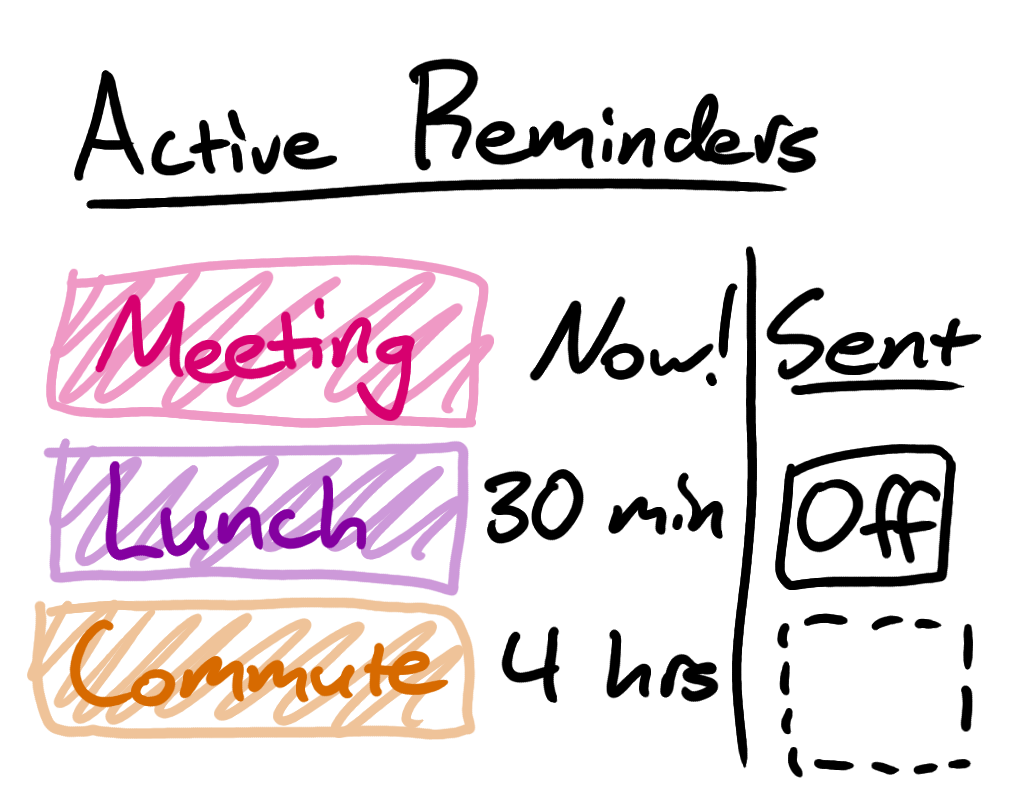 Active Reminders
Meeting Now! Sent
Lunch 30 min Off
Commute 4 hrs